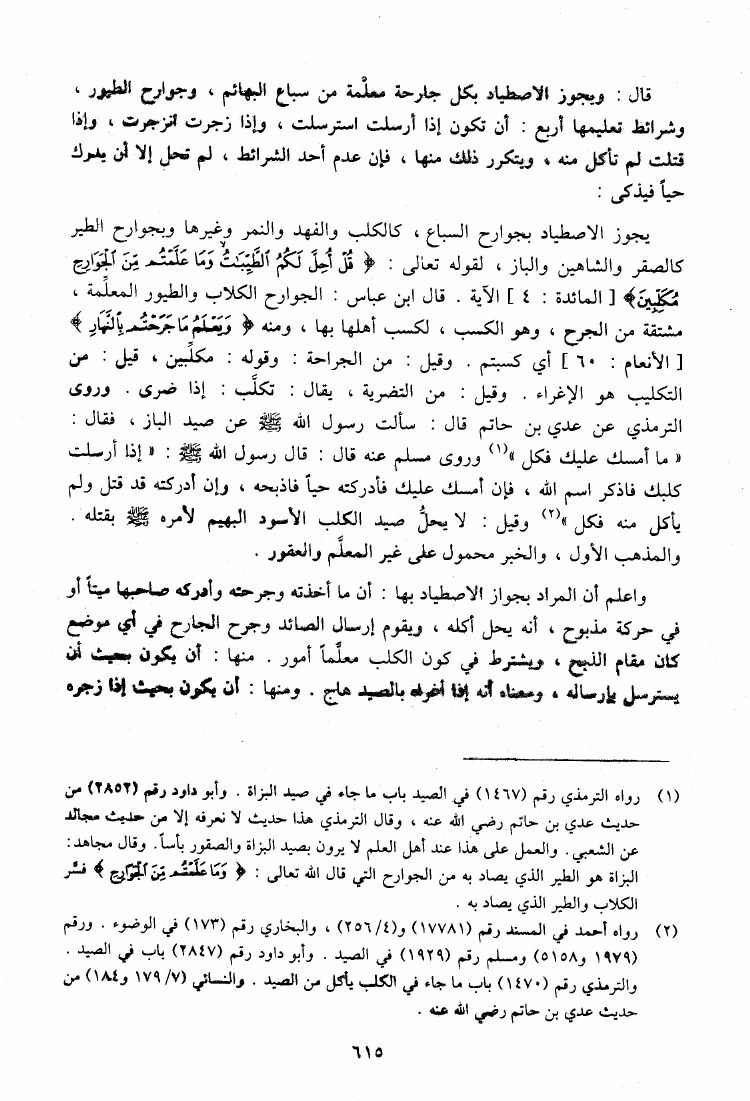 قال : ويجوز الاصطياد بكل جارحة معلَّمة من سباع البهائم ، وجوارح الطيور ،
وشرائط تعليمها أربع : أن تكون إذا أرسلت استرسلت ، وإذا زجرت انزجرت ، وإذا
قتلت لم تأكل منه ، ويتكرر ذلك منها ، فإن عدم أحد الشرائط ، لم تحل إلا أن يدرك
حياً فيذكى :
يجوز الاصطياد بجوارح السباع ، كالكلب والفهد والنمر وغيرها وبجوارح الطير
كالصقر والشاهين والباز ، لقوله تعالى : ﴿ قُلْ أُحِلَّ لَكُمُ ٱلطَّيِّبَٰتُ وَمَا عَلَّمْتُم مِّنَ ٱلْجَوَارِحِ
مُكَلِّبِينَ ﴾ [ المائدة : ٤ ] الآية . قال ابن عباس : الجوارح الكلاب والطيور المعلَّمة ،
مشتقة من الجرح ، وهو الكسب ، لكسب أهلها بها ، ومنه ﴿ وَيَعْلَمُ مَا جَرَحْتُم بِٱلنَّهَارِ ﴾
[ الأنعام : ٦٠ ] أي كسبتم . وقيل : من الجراحة : وقوله : مكلِّبين ، قيل : من
التكليب هو الإغراء . وقيل : من التضرية ، يقال : تكلَّب : إذا ضرى . وروى
الترمذي عن عدي بن حاتم قال : سألت رسول الله ﷺ عن صيد الباز ، فقال :
« ما أمسك عليك فكل »(١) وروى مسلم عنه قال : قال رسول الله ﷺ : « إذا أرسلت
كلبك فاذكر اسم الله ، فإن أمسك عليك فأدركته حياً فاذبحه ، وإن أدركته قد قتل ولم
يأكل منه فكل »(٢) وقيل : لا يحلُّ صيد الكلب الأسود البهيم لأمره ﷺ بقتله .
والمذهب الأول ، والخبر محمول على غير المعلَّم والعقور .
واعلم أن المراد بجواز الاصطياد بها : أن ما أخذته وجرحته وأدركه صاحبها ميتاً أو
في حركة مذبوح ، أنه يحل أكله ، ويقوم إرسال الصائد وجرح الجارح في أي موضع
كان مقام الذبح ، ويشترط في كون الكلب معلَّماً أمور . منها : أن يكون بحيث أن
يسترسل بإرساله ، ومعناه أنه إذا أغراه بالصيد هاج . ومنها : أن يكون بحيث إذا زجره
(١) رواه الترمذي رقم (١٤٦٧) في الصيد باب ما جاء في صيد البزاة . وأبو داود رقم (٢٨٥٢) من
حديث عدي بن حاتم رضي الله عنه ، وقال الترمذي هذا حديث لا نعرفه إلا من حديث مجالد
عن الشعبي . والعمل على هذا عند أهل العلم لا يرون بصيد البزاة والصقور بأساً . وقال مجاهد :
البزاة هو الطير الذي يصاد به من الجوارح التي قال الله تعالى : ﴿ وَمَا عَلَّمْتُم مِّنَ ٱلْجَوَارِحِ ﴾ فسَّر
الكلاب والطير الذي يصاد به .
(٢) رواه أحمد في المسند رقم (١٧٧٨١) و(٢٥٦/٤) ، والبخاري رقم (١٧٣) في الوضوء . ورقم
(١٩٧٩ و٥١٥٨) ومسلم رقم (١٩٢٩) في الصيد . وأبو داود رقم (٢٨٤٧) باب في الصيد .
والترمذي رقم (١٤٧٠) باب ما جاء في الكلب يأكل من الصيد . والنسائي (١٧٩/٧ و١٨٤) من
حديث عدي بن حاتم رضي الله عنه .
٦١٥